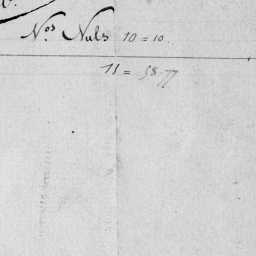 Nos Nuls 10 = 10.
11 = 58.77